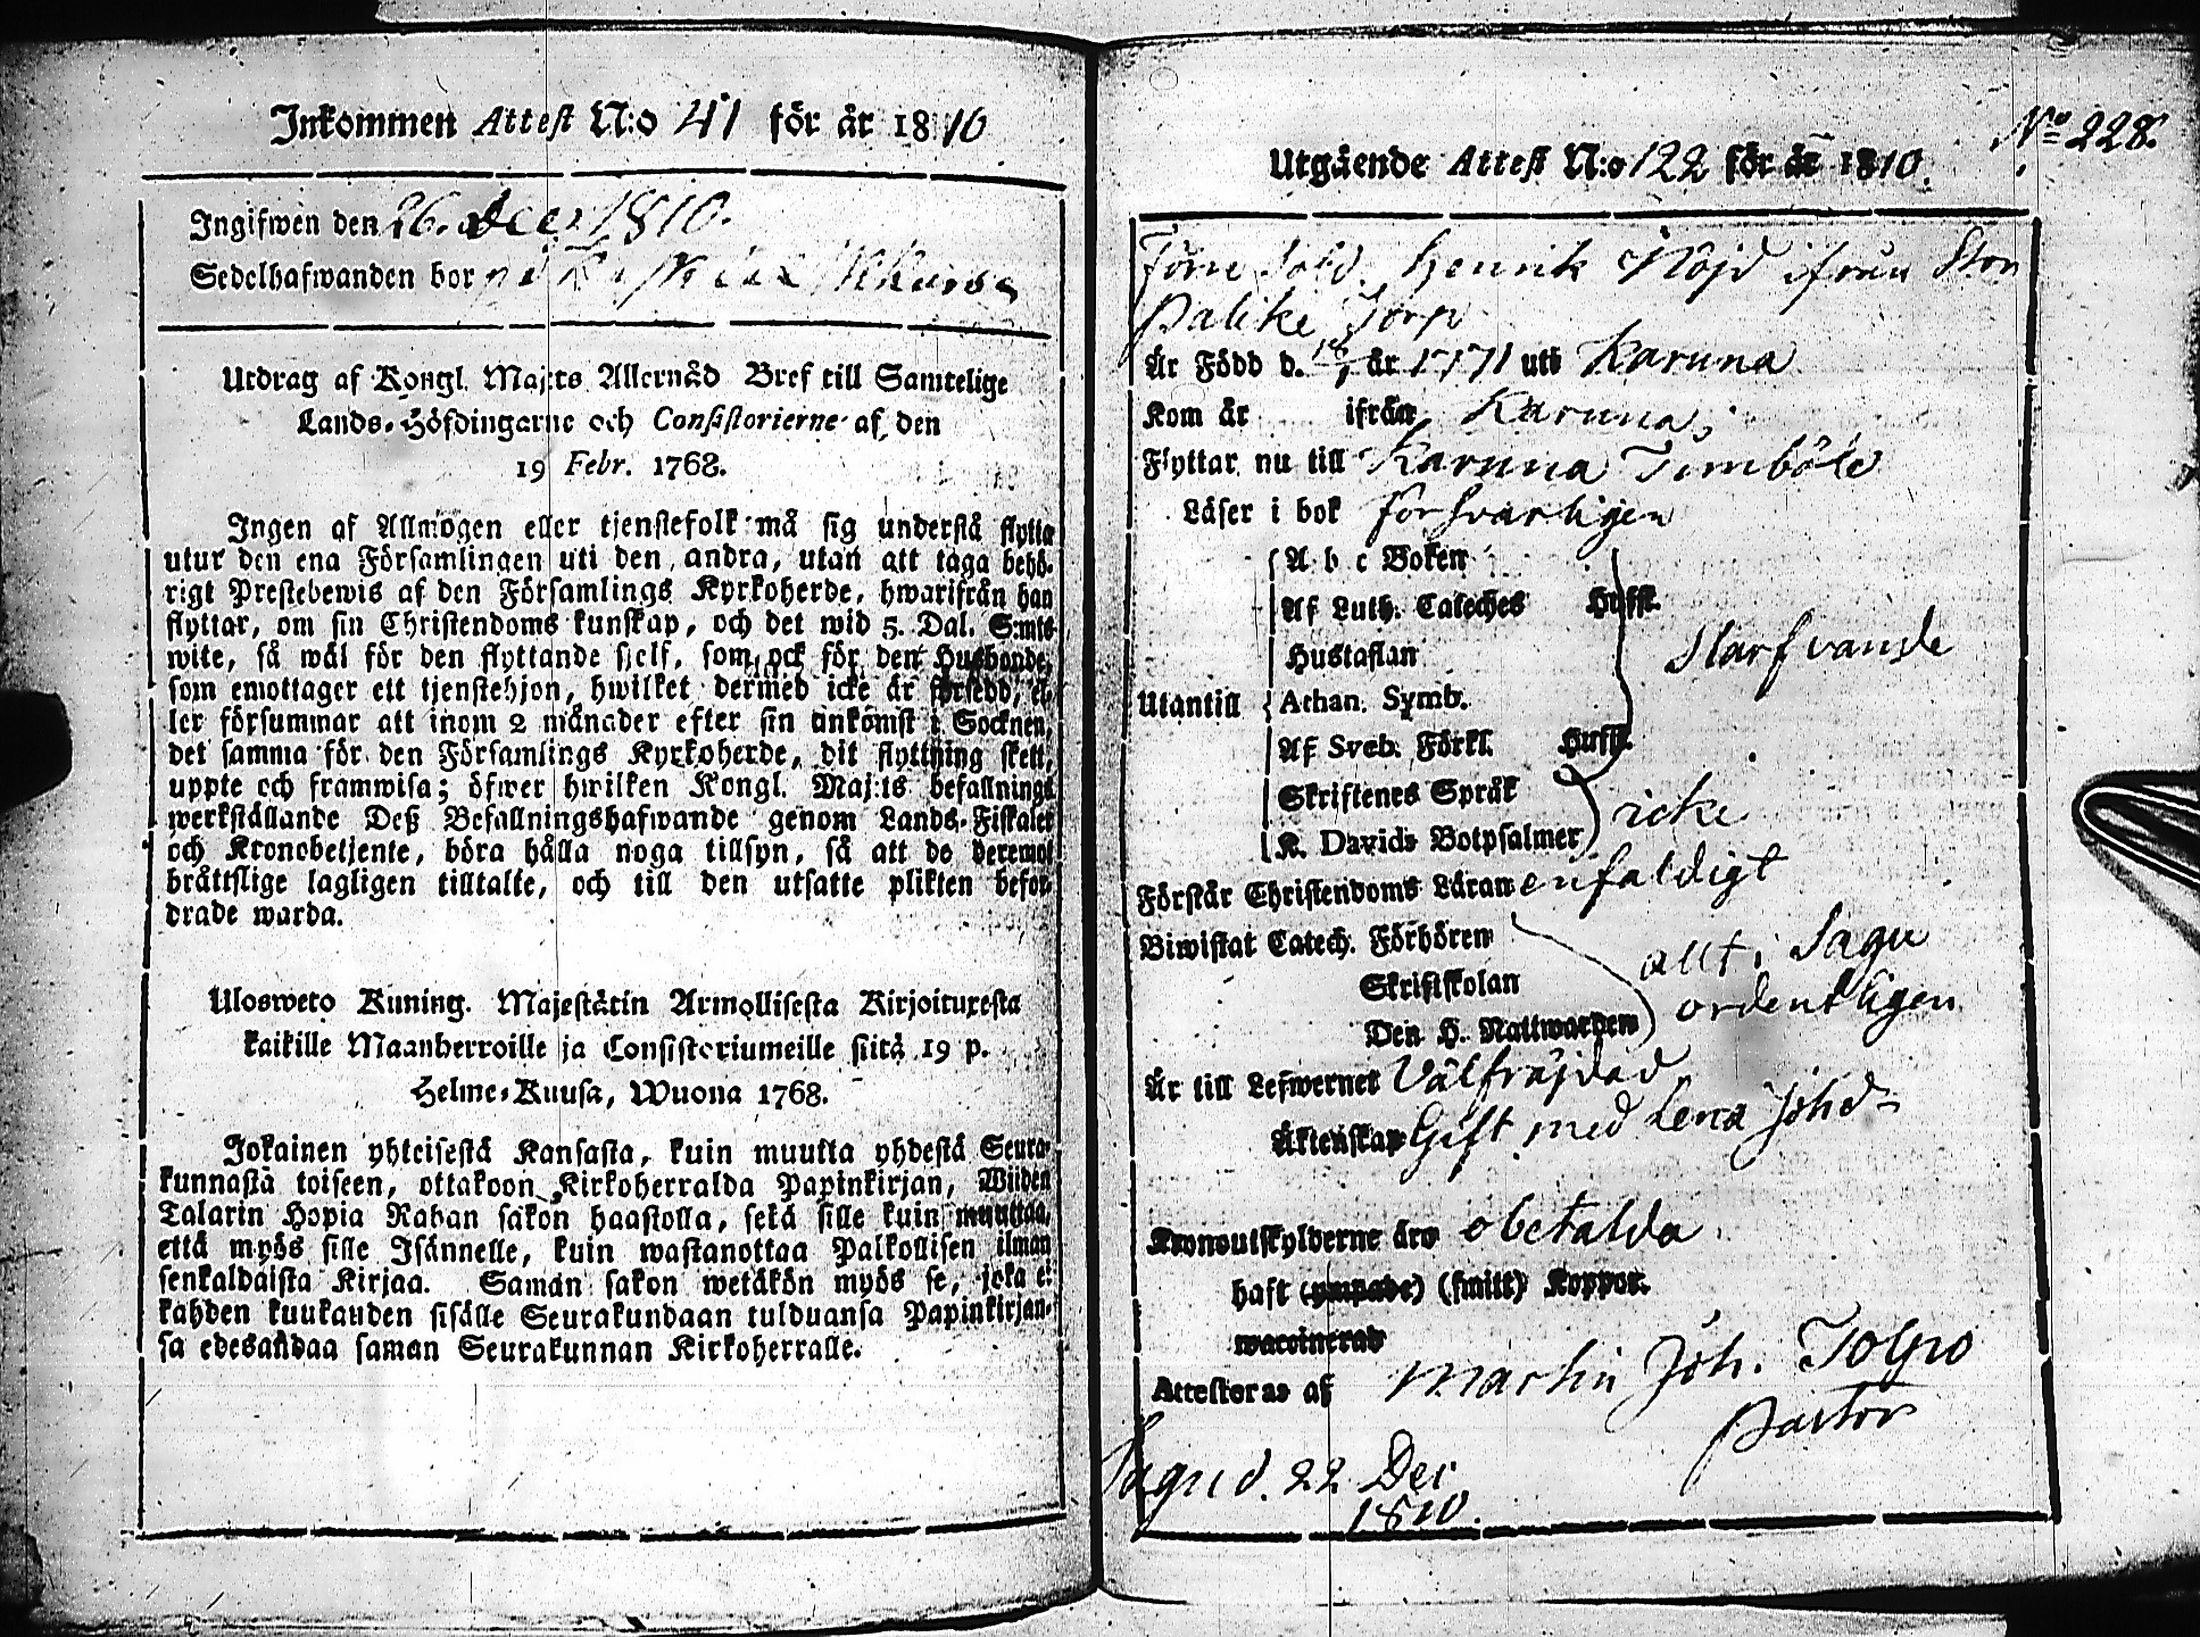 Inkommen Attest N:o 41 för år 1810
Ingifwen den 26. Dec. 1810.
Sedelhafwanden bor på
Utdrag af Kongl. Maj:ts Allernåd Bref till Samtelige
Lands-Höfdingarne och Consistorierne af den
19 Febr. 1768.
Ingen af Allmogen eller tjenstefolk må sig understå flytta
utur den ena Församlingen uti den andra, utan att taga behö-
rigt Prestebewis af den Församlings Kyrkoherde, hwarifrån han
flyttar, om sin Christendoms kunskap, och det wid 5. Dal. S:mts
wite, så wäl för den flyttande sjelf, som ock för den Husbonde,
som emottager ett tjenstehjon, hwilket dermed icke är försedd, el-
ler försummar att inom 2 månader efter sin ankomst i Socknen,
det samma för den Församlings Kyrkoherde, dit flyttning skett,
uppte och framwisa; öfwer hwilken Kongl. Maj:ts befallnings
werkställande Deß Befallningshafwande genom Lands-Fiskaler
och Kronobetjente, böra hålla noga tillsyn, så att de deremot
bråttslige lagligen tilltalte, och till den utsatte plikten befor-
drade warda.
Ulosweto Kuning. Majestätin Armollisesta Kirjoituxesta
kaikille Maanherroille ja Consistoriumeille siitä 19 p.
Helme-Kuusa, Wuona 1768.
Jokainen yhteisestä Kansasta, kuin muutta yhdestä Seura-
kunnasta toiseen, ottakoon Kirkoherralda Papinkirjan, Wiiden
Talarin Hopia Rahan sakon haastolla, sekä sille kuin muuttaa,
että myös sille Isännelle, kuin wastanottaa Palkollisen ilman
senkaldaista Kirjaa. Saman sakon wetäkön myös se, joka ei
kahden kuukauden sisälle Seurakundaan tulduansa Papinkirjan-
sa edesandaa saman Seurakunnan Kirkoherralle.
No 228.
Utgående Attest N:o 122 för år 1810.
Förre Sold. Henrik Nöjd ifrån Stor
Palike Torp
Är Född d. år 1771 uti Karuna
Kom år ifrån Karuna,
Flyttar nu till Karuna Timböle
Läser i bok försvarligen
A b c Boken
Af Luth. Cateches Huffs.
Hustaflan Slarfvande
Utantill Athan. Symb.
Af Sveb. Förkl. Huffs.
Skriftenes Språk
K. Davids Botpsalmer icke
Förstår Christendoms Läran enfaldigt
Biwistat Catech. Förhören allt i Sagu
Skriftskolan ordentligen
Den H. Nattwarden
Är till Lefwernet Välfräjdad
Äktenskap Gift med Lena Johd:r
Kronoutskylderne äro obetalda.
haft (ympade) (smitt) Koppor.
waccinerad
Attesteras af Martin Joh. Tolpo
Pastor
Sagu d. 22 Dec
1810.